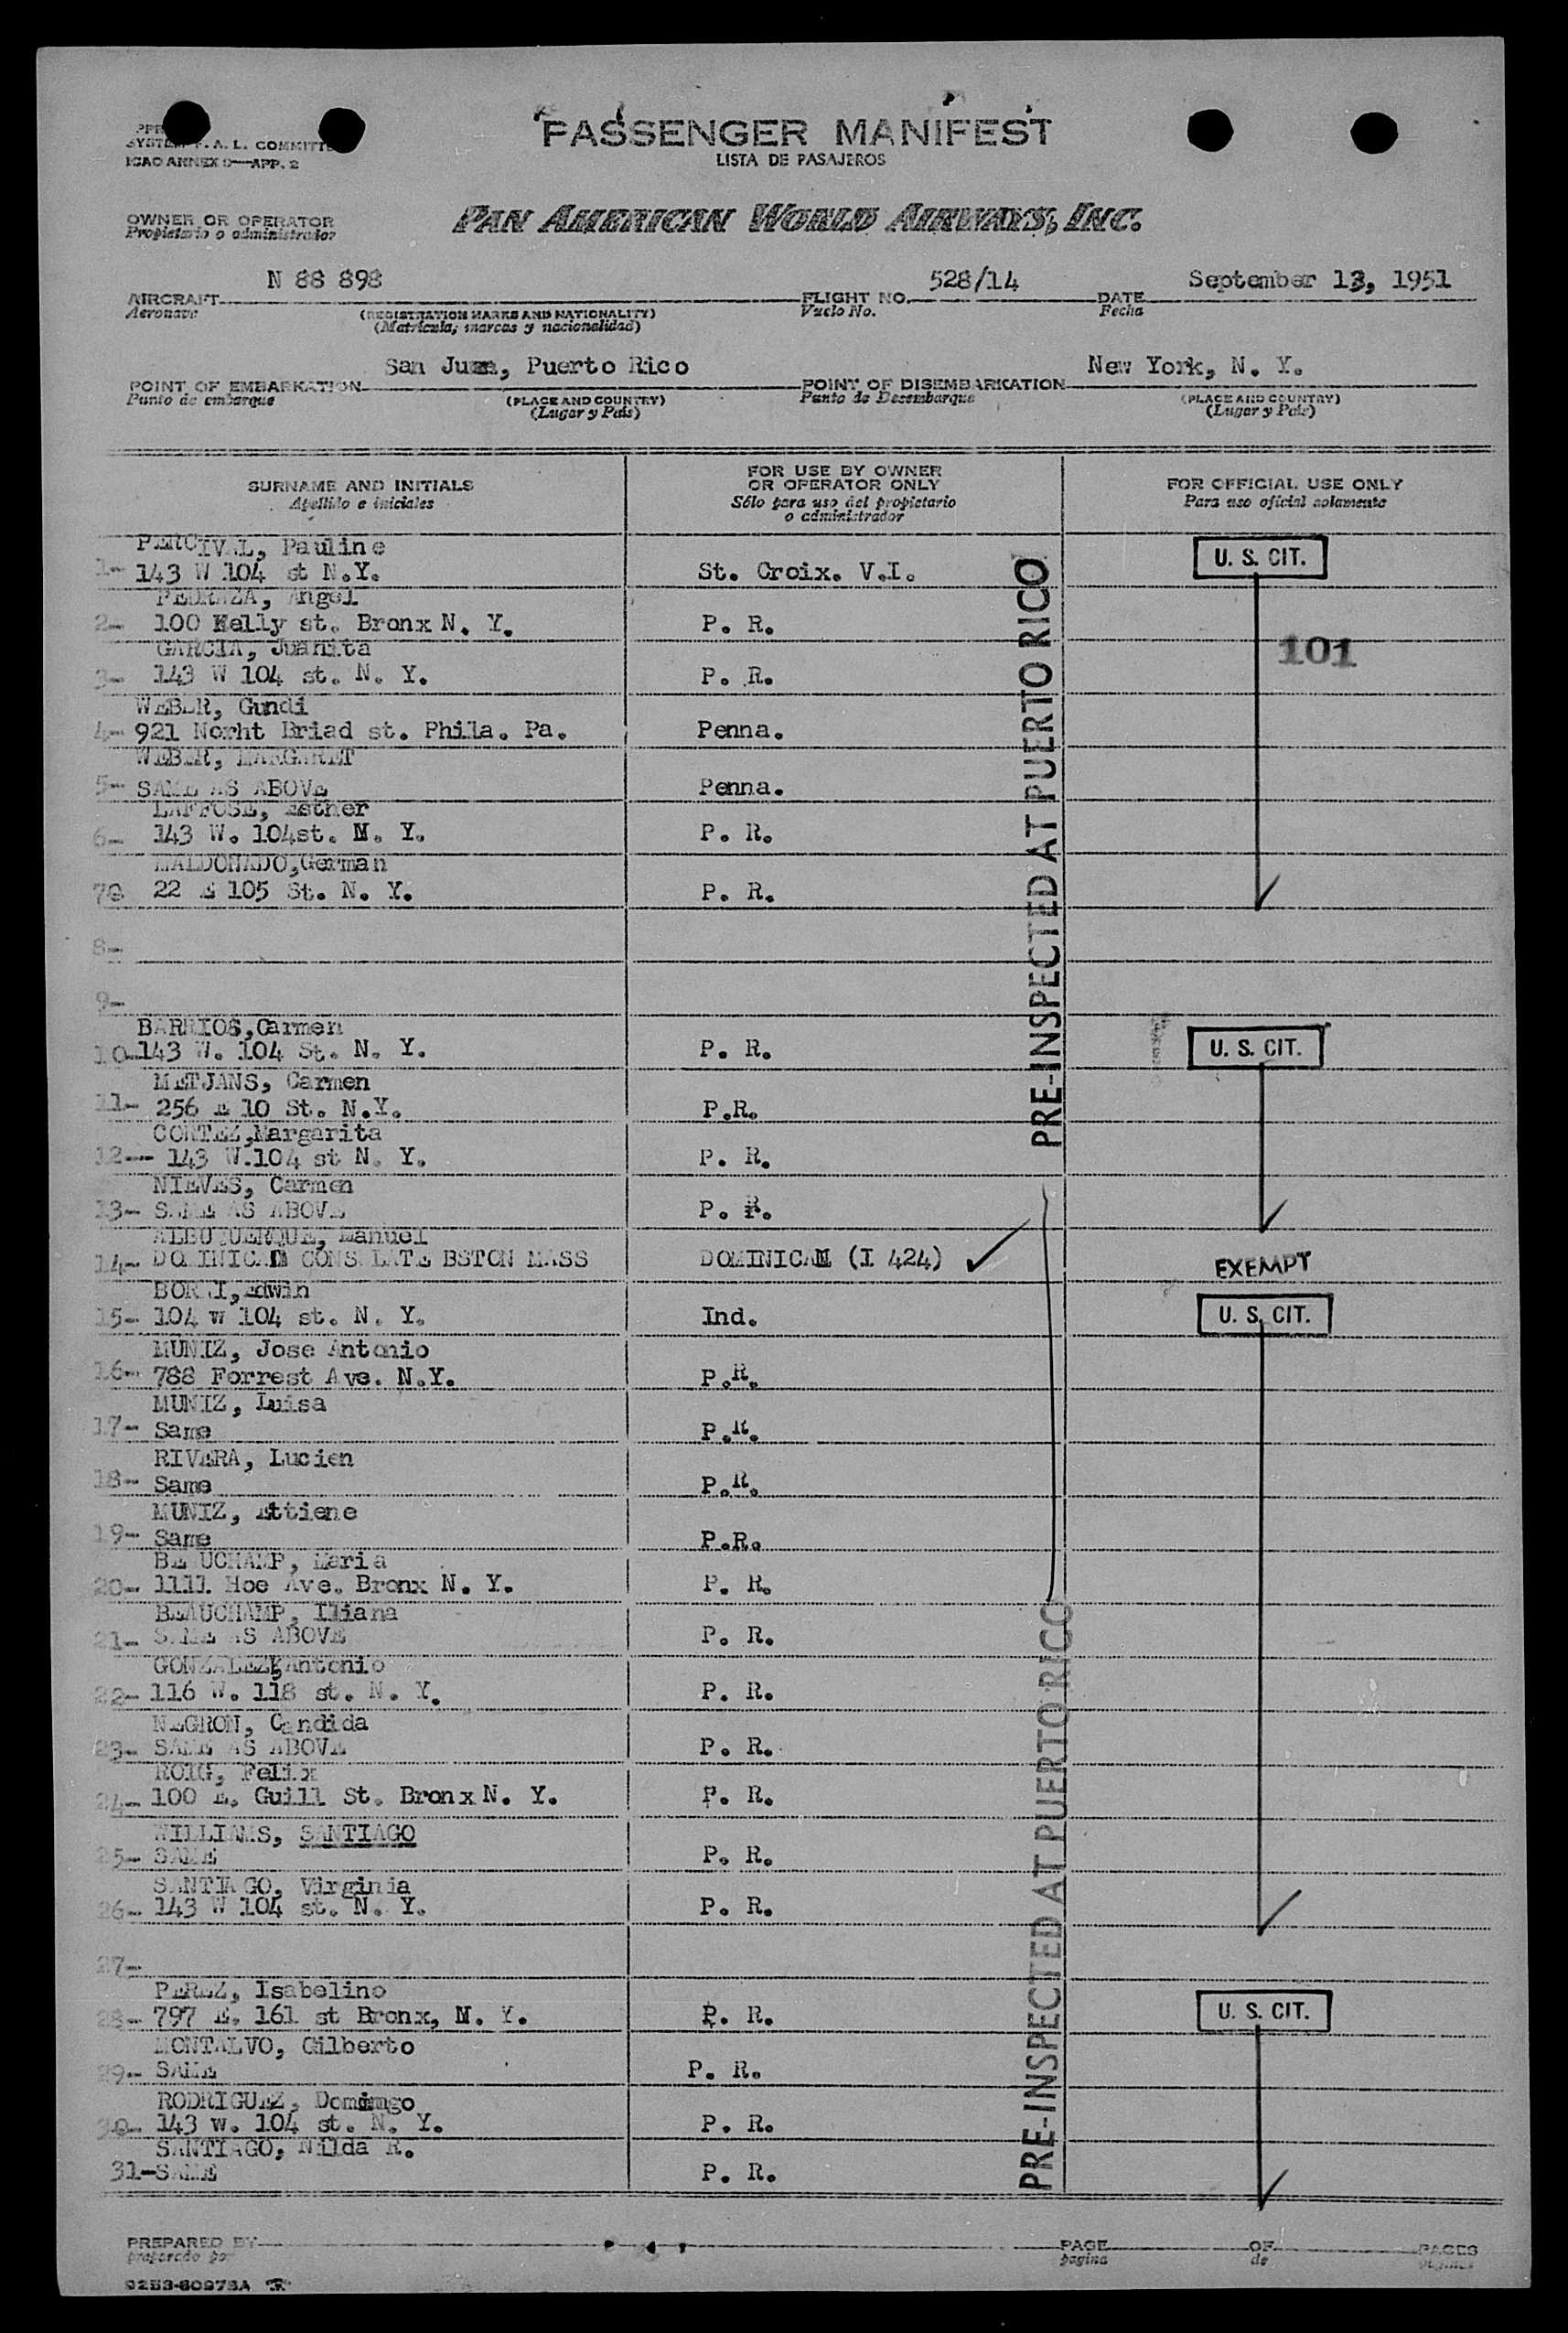 SYSTEM F. A. L. COMMITTE
ICAO ANNEX 9—APP. 2
PASSENGER MANIFEST
LISTA DE PASAJEROS
OWNER OR OPERATOR
Propietario o administrador
PAN AMERICAN WORLD AIRWAYS, INC.
AIRCRAFT N 88 898
Aeronave
(REGISTRATION MARKS AND NATIONALITY)
(Matricula, marcas y nacionalidad)
FLIGHT NO. 528/14
Vuelo No.
DATE September 13, 1951
Fecha
POINT OF EMBARKATION San Juan, Puerto Rico
Punto de embarque
(PLACE AND COUNTRY)
(Lugar y País)
POINT OF DISEMBARKATION New York, N. Y.
Punto de Desembarque
(PLACE AND COUNTRY)
(Lugar y País)
SURNAME AND INITIALS
Apellido e iniciales
FOR USE BY OWNER
OR OPERATOR ONLY
Sólo para uso del propietario
o administrador
FOR OFFICIAL USE ONLY
Para uso oficial solamente
PERCIVAL, Pauline
1- 143 W 104 st N.Y. St. Croix. V.I. U. S. CIT.
PEDRAZA, Angel
2- 100 Kelly st. Bronx N. Y. P. R.
101
GARCIA, Juanita
3- 143 W 104 st. N. Y. P. R.
WEBER, Gundi
4- 921 Norht Briad st. Phila. Pa. Penna.
WEBER, MARGARET
5- SAME AS ABOVE Penna.
LAFFOSE, Esther
6- 143 W. 104st. M. Y. P. R.
MALDONADO,German
7- 22 E 105 St. N. Y. P. R.
8-
9-
PRE-INSPECTED AT PUERTO RICO
BARRIOS,Carmen
10-143 W. 104 St. N. Y. P. R. U. S. CIT.
METJANS, Carmen
11- 256 E 10 St. N.Y. P.R.
CORTEZ,Margarita
12-- 143 W.104 st N. Y. P. R.
NIEVES, Carmen
13- SAME AS ABOVE P. R.
ALBUQUERQUE, Manuel
14- DOMINICAN CONSULATE BSTON MASS DOMINICAN (I 424) ✓ EXEMPT
Edwin
15- 104 w 104 st. N. Y. Ind. U. S. CIT.
MUNIZ, Jose Antonio
16- 788 Forrest Ave. N.Y. P.R.
MUNIZ, Luisa
17- Same P.R.
RIVERA, Lucien
18- Same P.R.
MUNIZ, Ettiene
19- Same P.R.
BEAUCHAMP, Maria
20- 1111 Hoe Ave. Bronx N. Y. P. R.
BEAUCHAMP, Iliana
21- SAME AS ABOVE P. R.
GONZALEZ,Antonio
22- 116 W. 118 st. N. Y. P. R.
NEGRON, Candida
23- SAME AS ABOVE P. R.
ROIG, Felix
24- 100 E. Guill St. Bronx N. Y. P. R.
WILLIAMS, SANTIAGO
25- SAME P. R.
SANTIAGO, Virginia
26- 143 W 104 st. N. Y. P. R.
27-
PRE-INSPECTED AT PUERTO RICO
PEREZ, Isabelino
28- 797 E. 161 st Bronx, M. Y. P. R. U. S. CIT.
MONTALVO, Gilberto
29- SAME P. R.
RODRIGUEZ, Domingo
30- 143 w. 104 st. N. Y. P. R.
SANTIAGO, Nilda R.
31-SAME P. R.
PREPARED BY
preparado por
PAGE
pagina
OF
de
PAGES